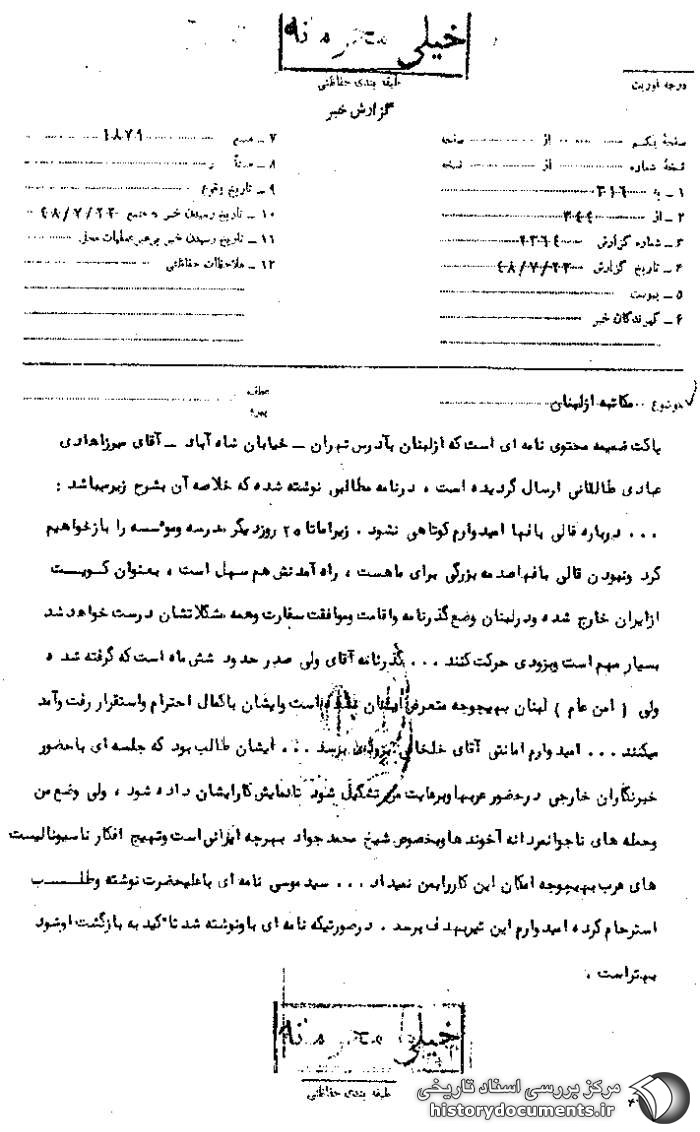 خیلی محرمانه
طبقه بندی حفاظتی
درجه فوریت
گزارش خبر
صفحهٔ یکم از صفحه
نسخهٔ شماره از نسخه
۱ـ به ۳۱۶
۲ـ از
۳ـ شماره گزارش
۴ـ تاریخ گزارش ۴۸/۷/۲۳
۵ـ پیوست
۶ـ گیرندگان خبر
۷ـ منبع ۱۸۷۹
۸ـ منشأ
۹ـ تاریخ وقوع
۱۰ـ تاریخ رسیدن خبر به منبع ۴۸/۷/۲۳
۱۱ـ تاریخ رسیدن خبر به رهبر عملیات محلی
۱۲ـ ملاحظات حفاظتی
موضوع مکاتبه از لبنان
عطف به
پیرو
پاکت ضمیمه محتوی نامه ای است که از لبنان بآدرس تهران ـ خیابان شاه آباد ـ آقای میرزا هادی
عبادی طالقانی ارسال گردیده است ، در نامه مطالبی نوشته شده که خلاصه آن بشرح زیر میباشد :
... درباره قالی بافها امیدوارم کوتاهی نشود . زیرا ما تا ۲۵ روز دیگر مدرسه و موسسه را باز خواهیم
کرد و نبودن قالی بافها صدمه بزرگی برای ما هست ، راه آمدنش هم سهل است ، بعنوان کویت
از ایران خارج شده و در لبنان وضع گذرنامه و اقامت و موافقت سفارت و همه مشکلاتشان درست خواهد شد
بسیار مهم است و بزودی حرکت کنند ... گذرنامه آقای ولی صدر حدود شش ماه است که گرفته شده
ولی ( امن عام ) لبنان بهیچوجه متعرض ایشان نشده است و ایشان با کمال احترام و استقرار رفت و آمد
میکنند ... امیدوارم امانتی آقای خلخالی بزودی برسد ... ایشان طالب بود که جلسه ای با حضور
خبرنگاران خارجی در حضور عربها و برعایت من تشکیل شود تا نمایش کار ایشان داده شود ، ولی وضع من
و حمله های ناجوانمردانه آخوندها و بخصوص شیخ محمد جواد بهر چه ایرانی است و تهییج افکار ناسیونالیست
های عرب بهیچوجه امکان این کار را بمن نمیداد ... سید موسی نامه ای باعلیحضرت نوشته و طلب
استرحام کرده امیدوارم این تیر بهدف برسد . در صورتیکه نامه ای باو نوشته شد تاکید به بازگشت او شود
بهتر است .
خیلی محرمانه
طبقه بندی حفاظتی
مرکز بررسی اسناد تاریخی
historydocuments.ir